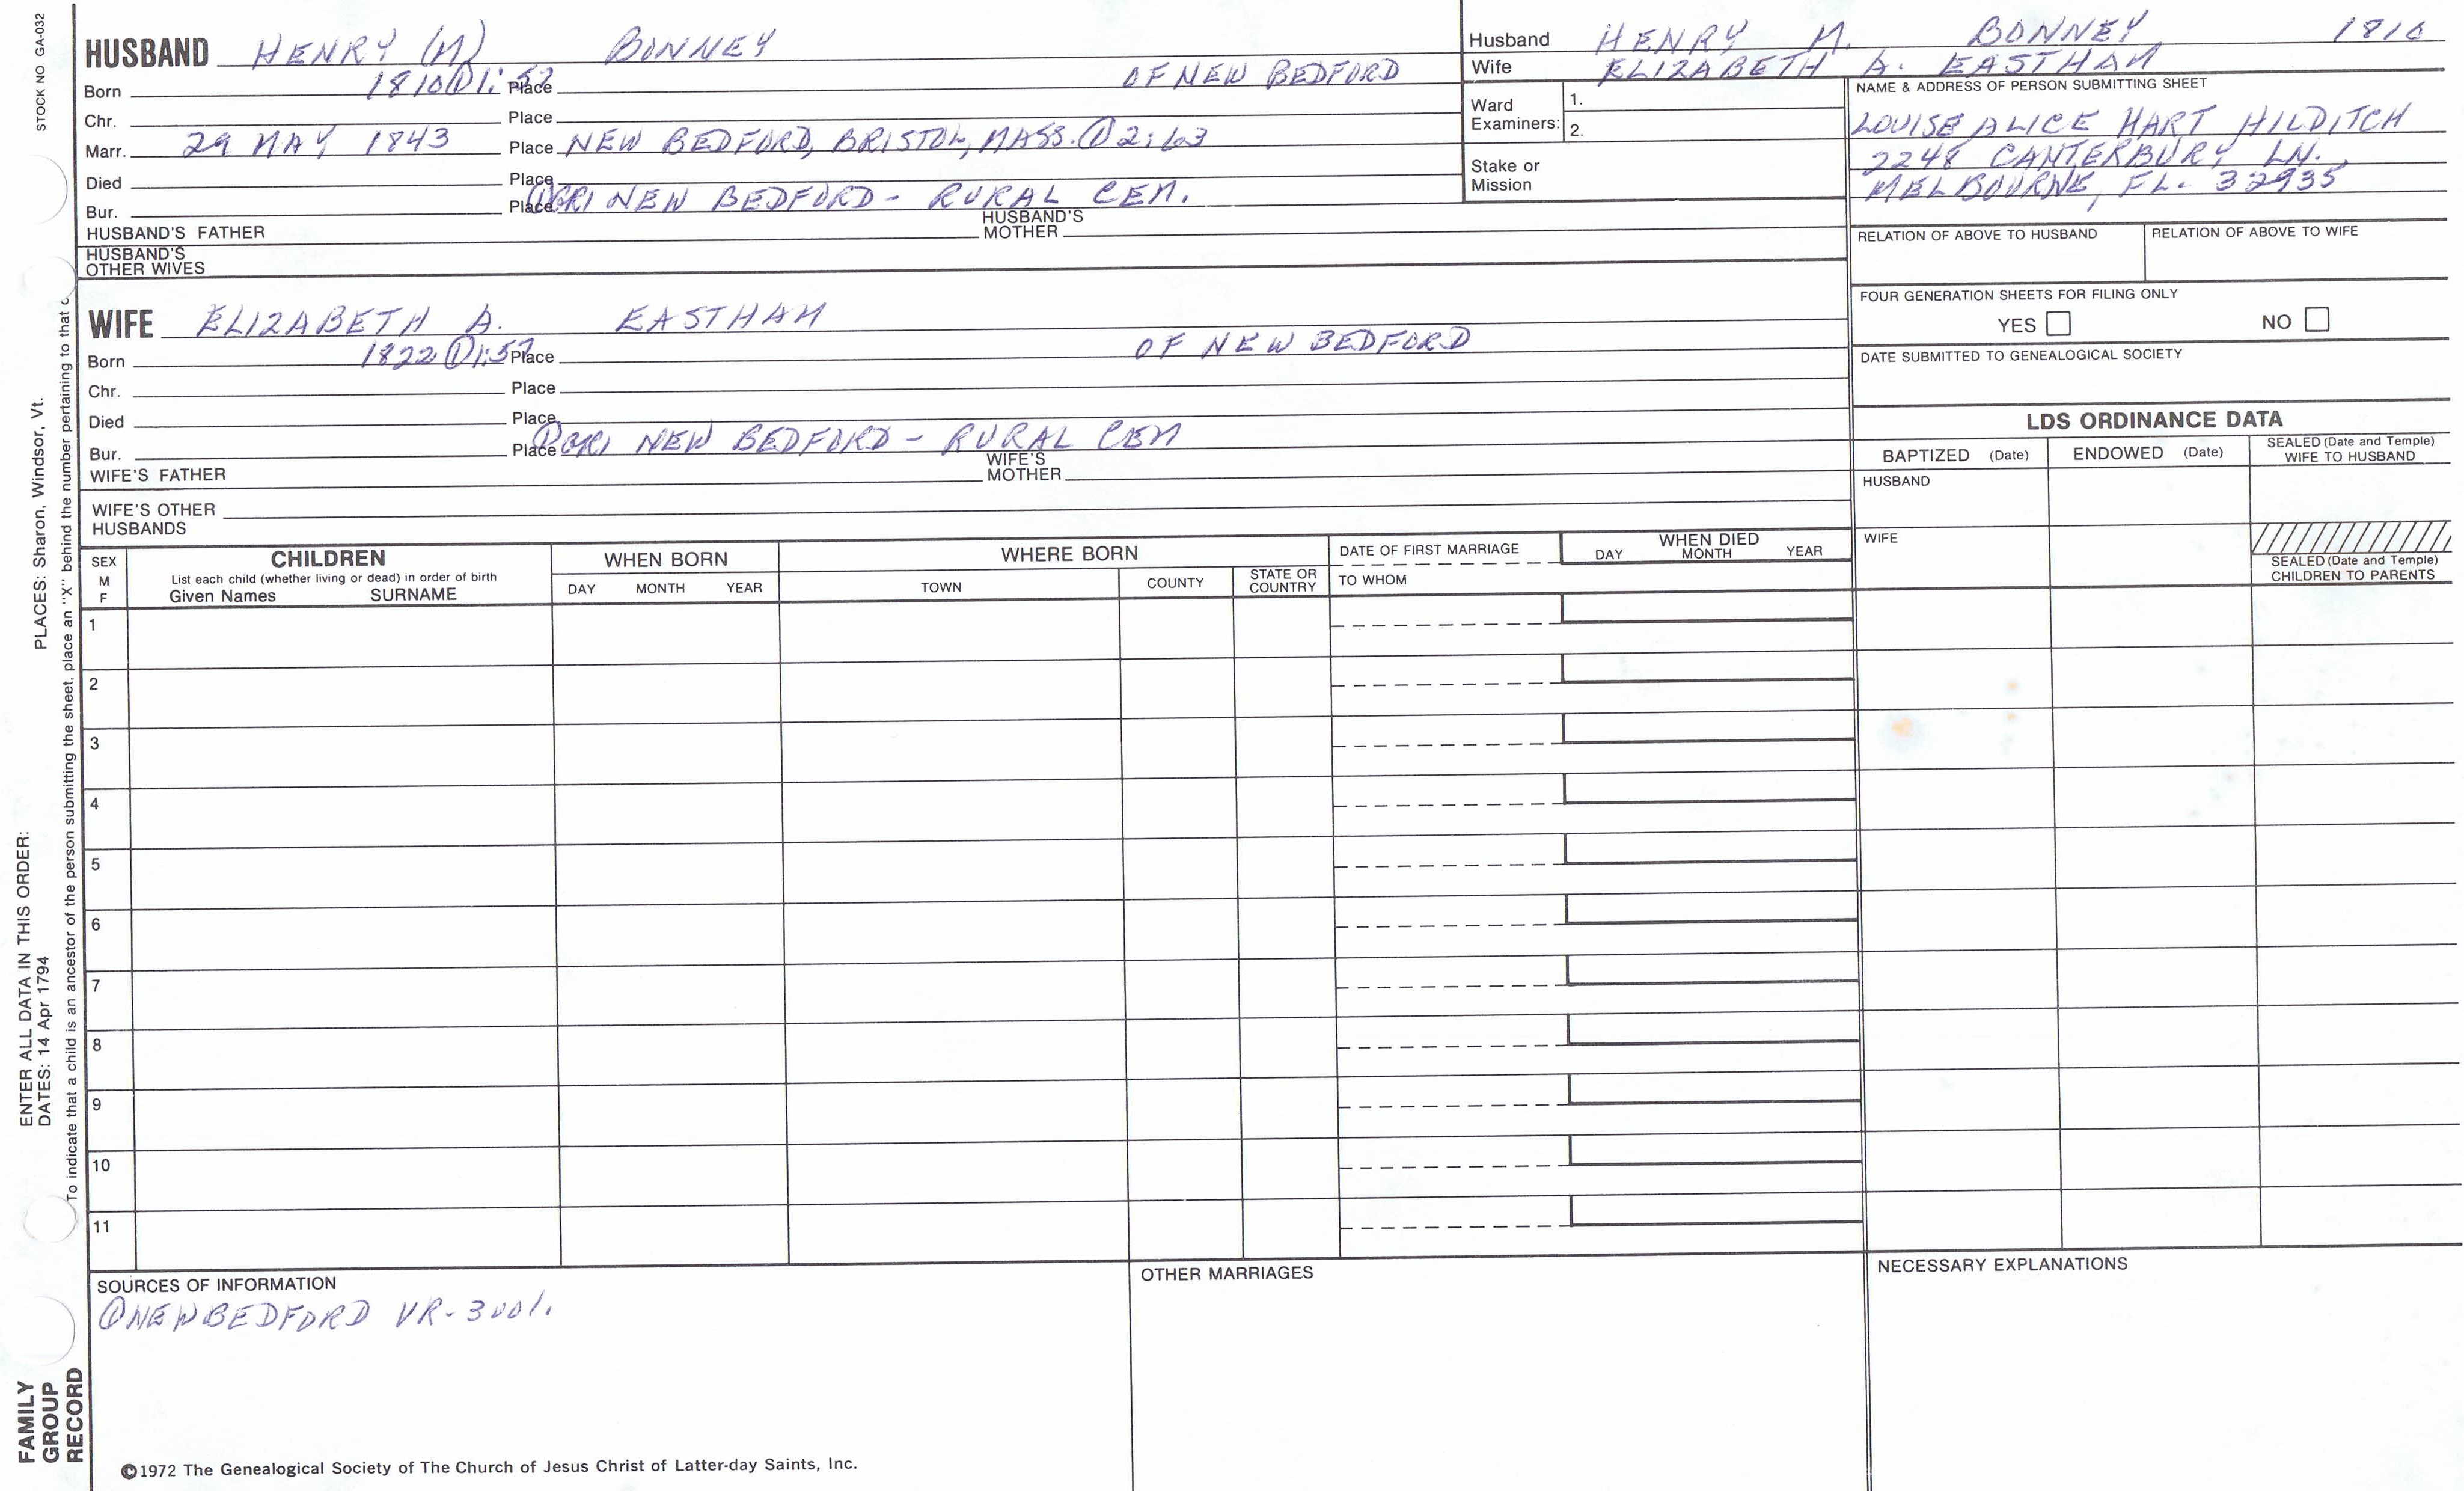 STOCK NO GA-032
HUSBAND HENRY (M) BONNEY
Born 1810 ① 1:52 Place OF NEW BEDFORD
Chr. Place
Marr. 29 MAY 1843 Place NEW BEDFORD, BRISTOL, MASS. ① 2:63
Died Place
Bur. Place ① GRI NEW BEDFORD - RURAL CEM.
HUSBAND'S FATHER HUSBAND'S MOTHER
HUSBAND'S OTHER WIVES
WIFE ELIZABETH A. EASTHAM
Born 1822 ① 1:57 Place OF NEW BEDFORD
Chr. Place
Died Place
Bur. Place ① GRI NEW BEDFORD - RURAL CEM
WIFE'S FATHER WIFE'S MOTHER
WIFE'S OTHER HUSBANDS
Husband HENRY M. BONNEY 1810
Wife ELIZABETH A. EASTHAM
Ward Examiners: 1.
2.
Stake or Mission
NAME & ADDRESS OF PERSON SUBMITTING SHEET
LOUISE ALICE HART HILDITCH
2248 CANTERBURY LN.
MELBOURNE, FL. 32935
RELATION OF ABOVE TO HUSBAND RELATION OF ABOVE TO WIFE
FOUR GENERATION SHEETS FOR FILING ONLY
YES NO
DATE SUBMITTED TO GENEALOGICAL SOCIETY
LDS ORDINANCE DATA
BAPTIZED (Date) ENDOWED (Date) SEALED (Date and Temple) WIFE TO HUSBAND
HUSBAND
WIFE
SEALED (Date and Temple) CHILDREN TO PARENTS
SEX M F
CHILDREN
List each child (whether living or dead) in order of birth
Given Names SURNAME
WHEN BORN
DAY MONTH YEAR
WHERE BORN
TOWN COUNTY STATE OR COUNTRY
DATE OF FIRST MARRIAGE
TO WHOM
WHEN DIED
DAY MONTH YEAR
1
2
3
4
5
6
7
8
9
10
11
SOURCES OF INFORMATION
① NEW BEDFORD VR - 3001.
OTHER MARRIAGES
NECESSARY EXPLANATIONS
©1972 The Genealogical Society of The Church of Jesus Christ of Latter-day Saints, Inc.
FAMILY
GROUP
RECORD
ENTER ALL DATA IN THIS ORDER:
DATES: 14 Apr 1794
PLACES: Sharon, Windsor, Vt.
To indicate that a child is an ancestor of the person submitting the sheet, place an "X" behind the number pertaining to that